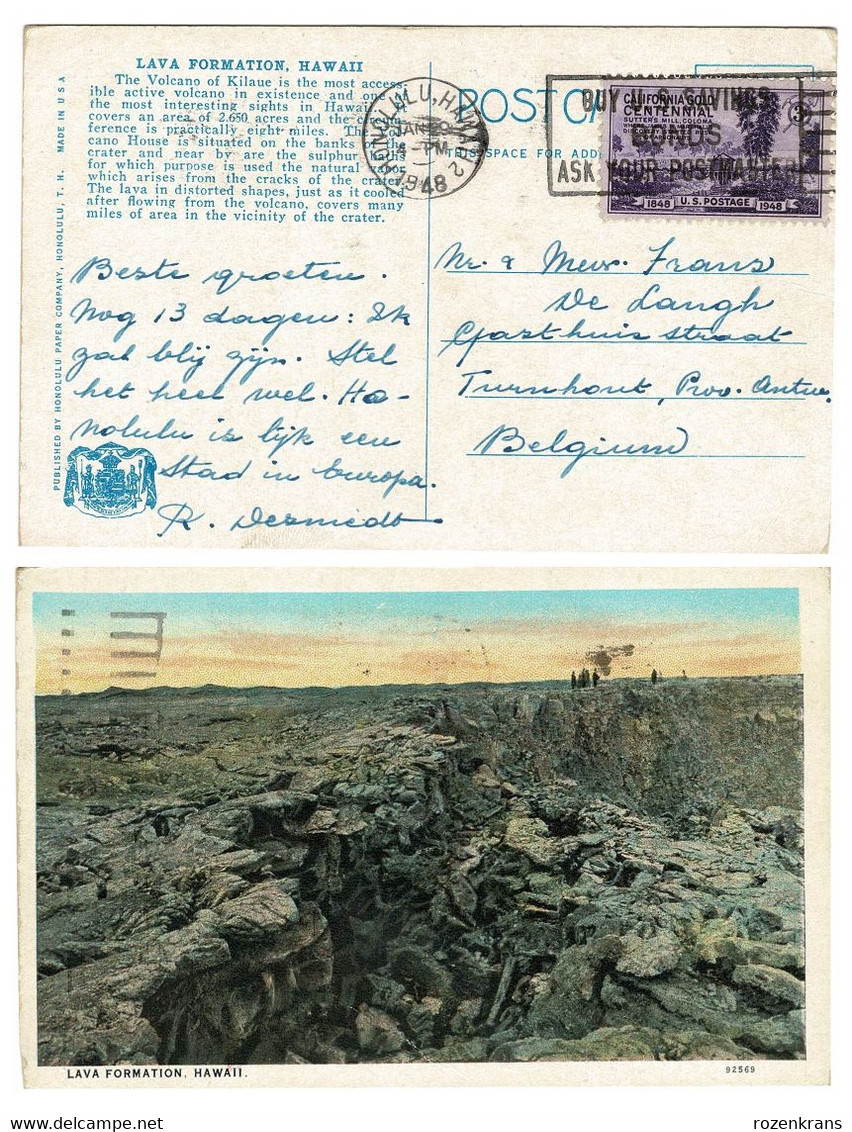 LAVA FORMATION, HAWAII
The Volcano of Kilaue is the most access-
ible active volcano in existence and one of
the most interesting sights in Hawaii.
covers an area of 2.650 acres and the circum-
ference is practically eight miles. The
cano House is situated on the banks of the
crater and near by are the sulphur
for which purpose is used the natural
which arises from the cracks of the crater.
The lava in distorted shapes, just as it cooled
after flowing from the volcano, covers many
miles of area in the vicinity of the crater.
PUBLISHED BY HONOLULU PAPER COMPANY, HONOLULU, T. H. MADE IN U S A
HONOLULU, HAWAII 2
JAN 29
4 - PM
1948
POSTCA
THIS SPACE FOR ADD
BUY U.S. SAVINGS
BONDS
ASK YOUR POSTMASTER
CALIFORNIA GOLD 3¢
CENTENNIAL
SUTTER'S MILL, COLOMA
1848 U.S. POSTAGE 1948
Beste groeten.
Nog 13 dagen: Ik
zal blij zijn. Stel
het heel wel. Ho-
nolulu is lijk een
Stad in Europa.
R. Desmedt
Mr. & Mevr. Frans
De Langh
Gasthuis straat
Turnhout, Prov. Antw.
Belgium
LAVA FORMATION, HAWAII.
92569
rozenkrans